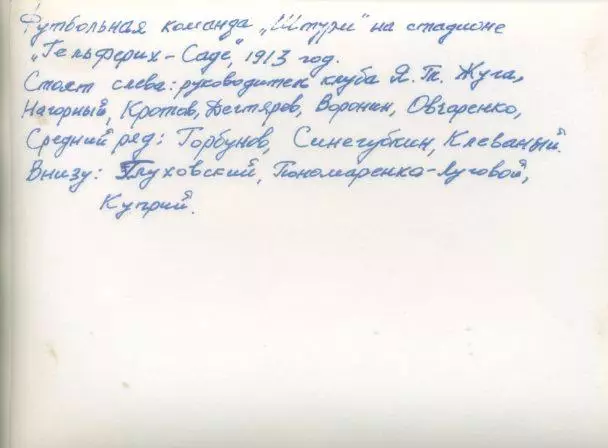 Футбольная команда „Штурм" на стадионе
„Гельферих-Саде", 1913 год.
Стоят слева: руководитель клуба Я. Гл. Жуга,
Нагорный, Кротов, Дегтярев, Воронин, Овчаренко,
Средний ряд: Горбунов, Синегубкин, Клеваный.
Внизу: Глуховский, Пономаренко-Луговой,
Куприй.